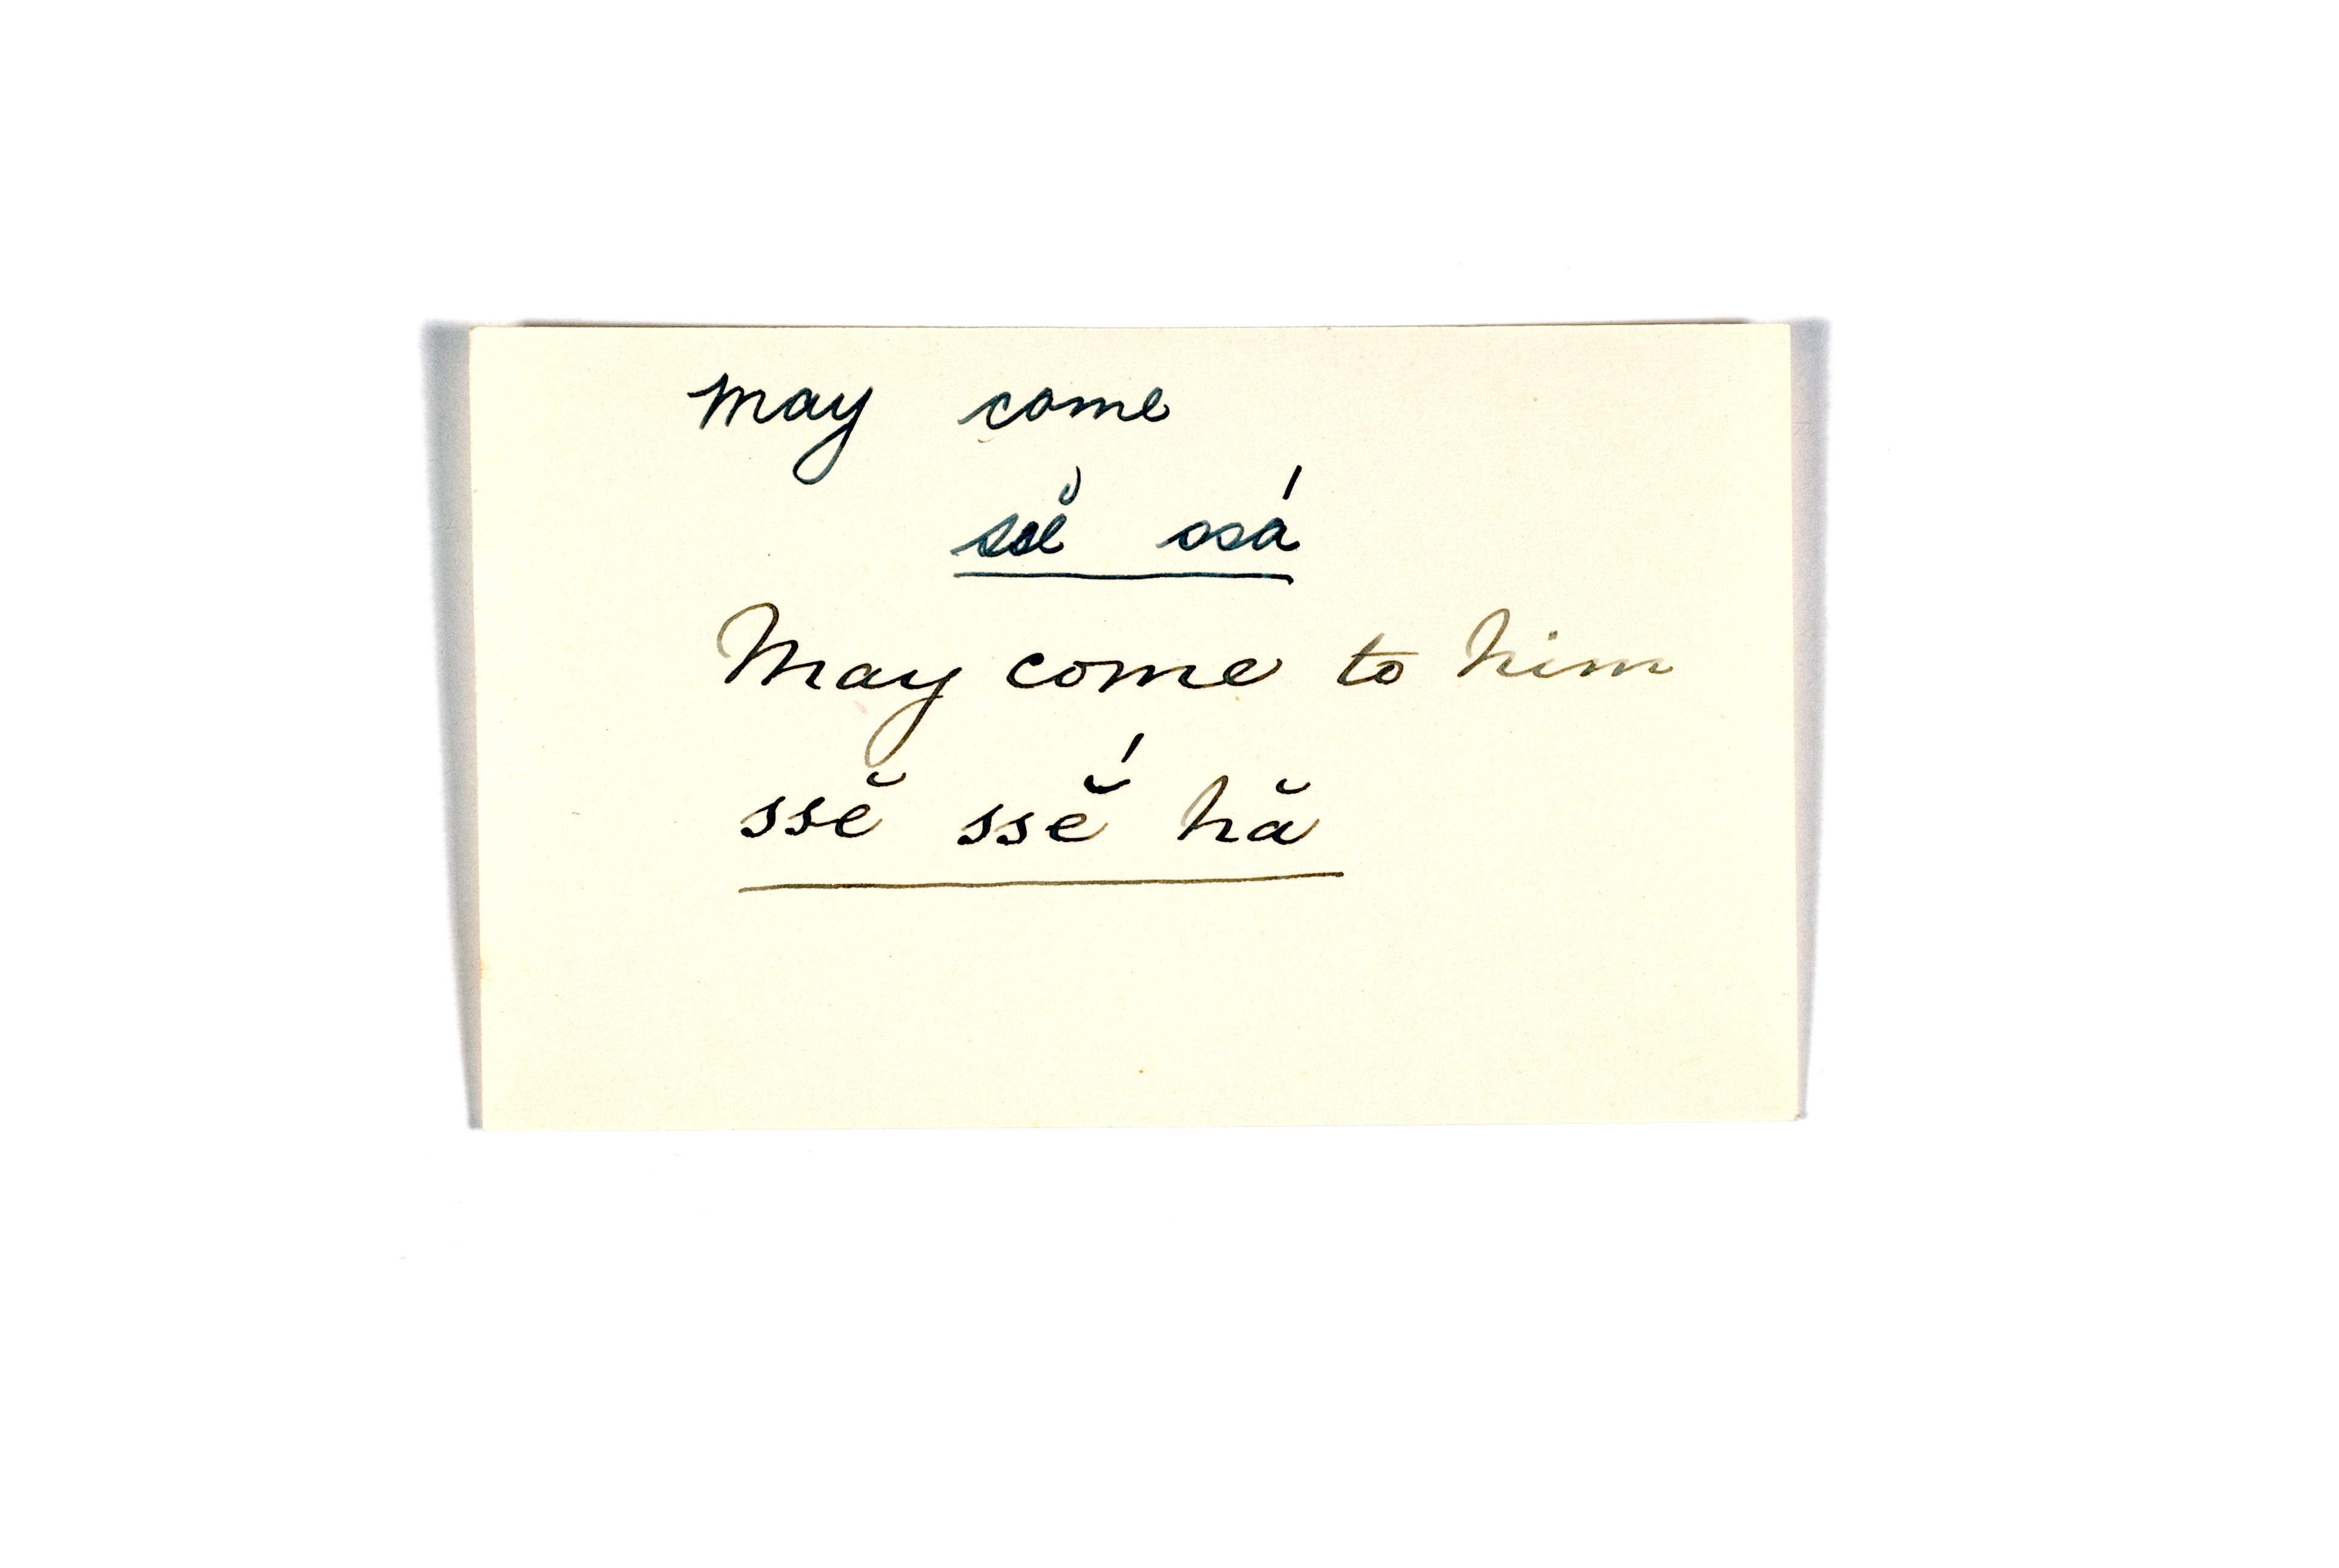 May come
ssĕ osá
May come to him
ssĕ ssĕ́ hă